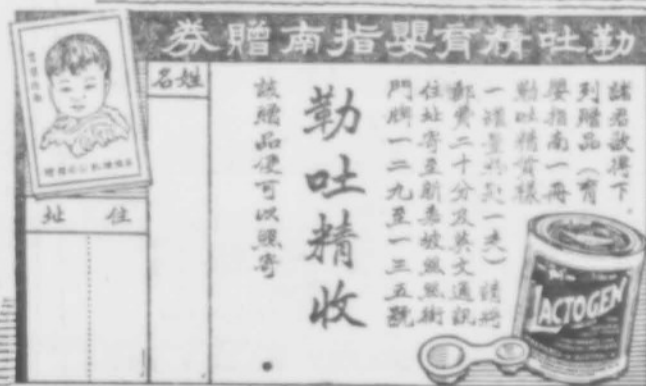 勒吐精育嬰指南贈券
諸君欲得下
列贈品（育
嬰指南一冊
勒吐精貨樣
一罐量匙一夾）請將
郵費二十分及英文通訊
住址寄至新嘉坡絲絲街
門牌一二九至一三五號
勒吐精收
該贈品便可以照寄
姓名
住址
LACTOGEN